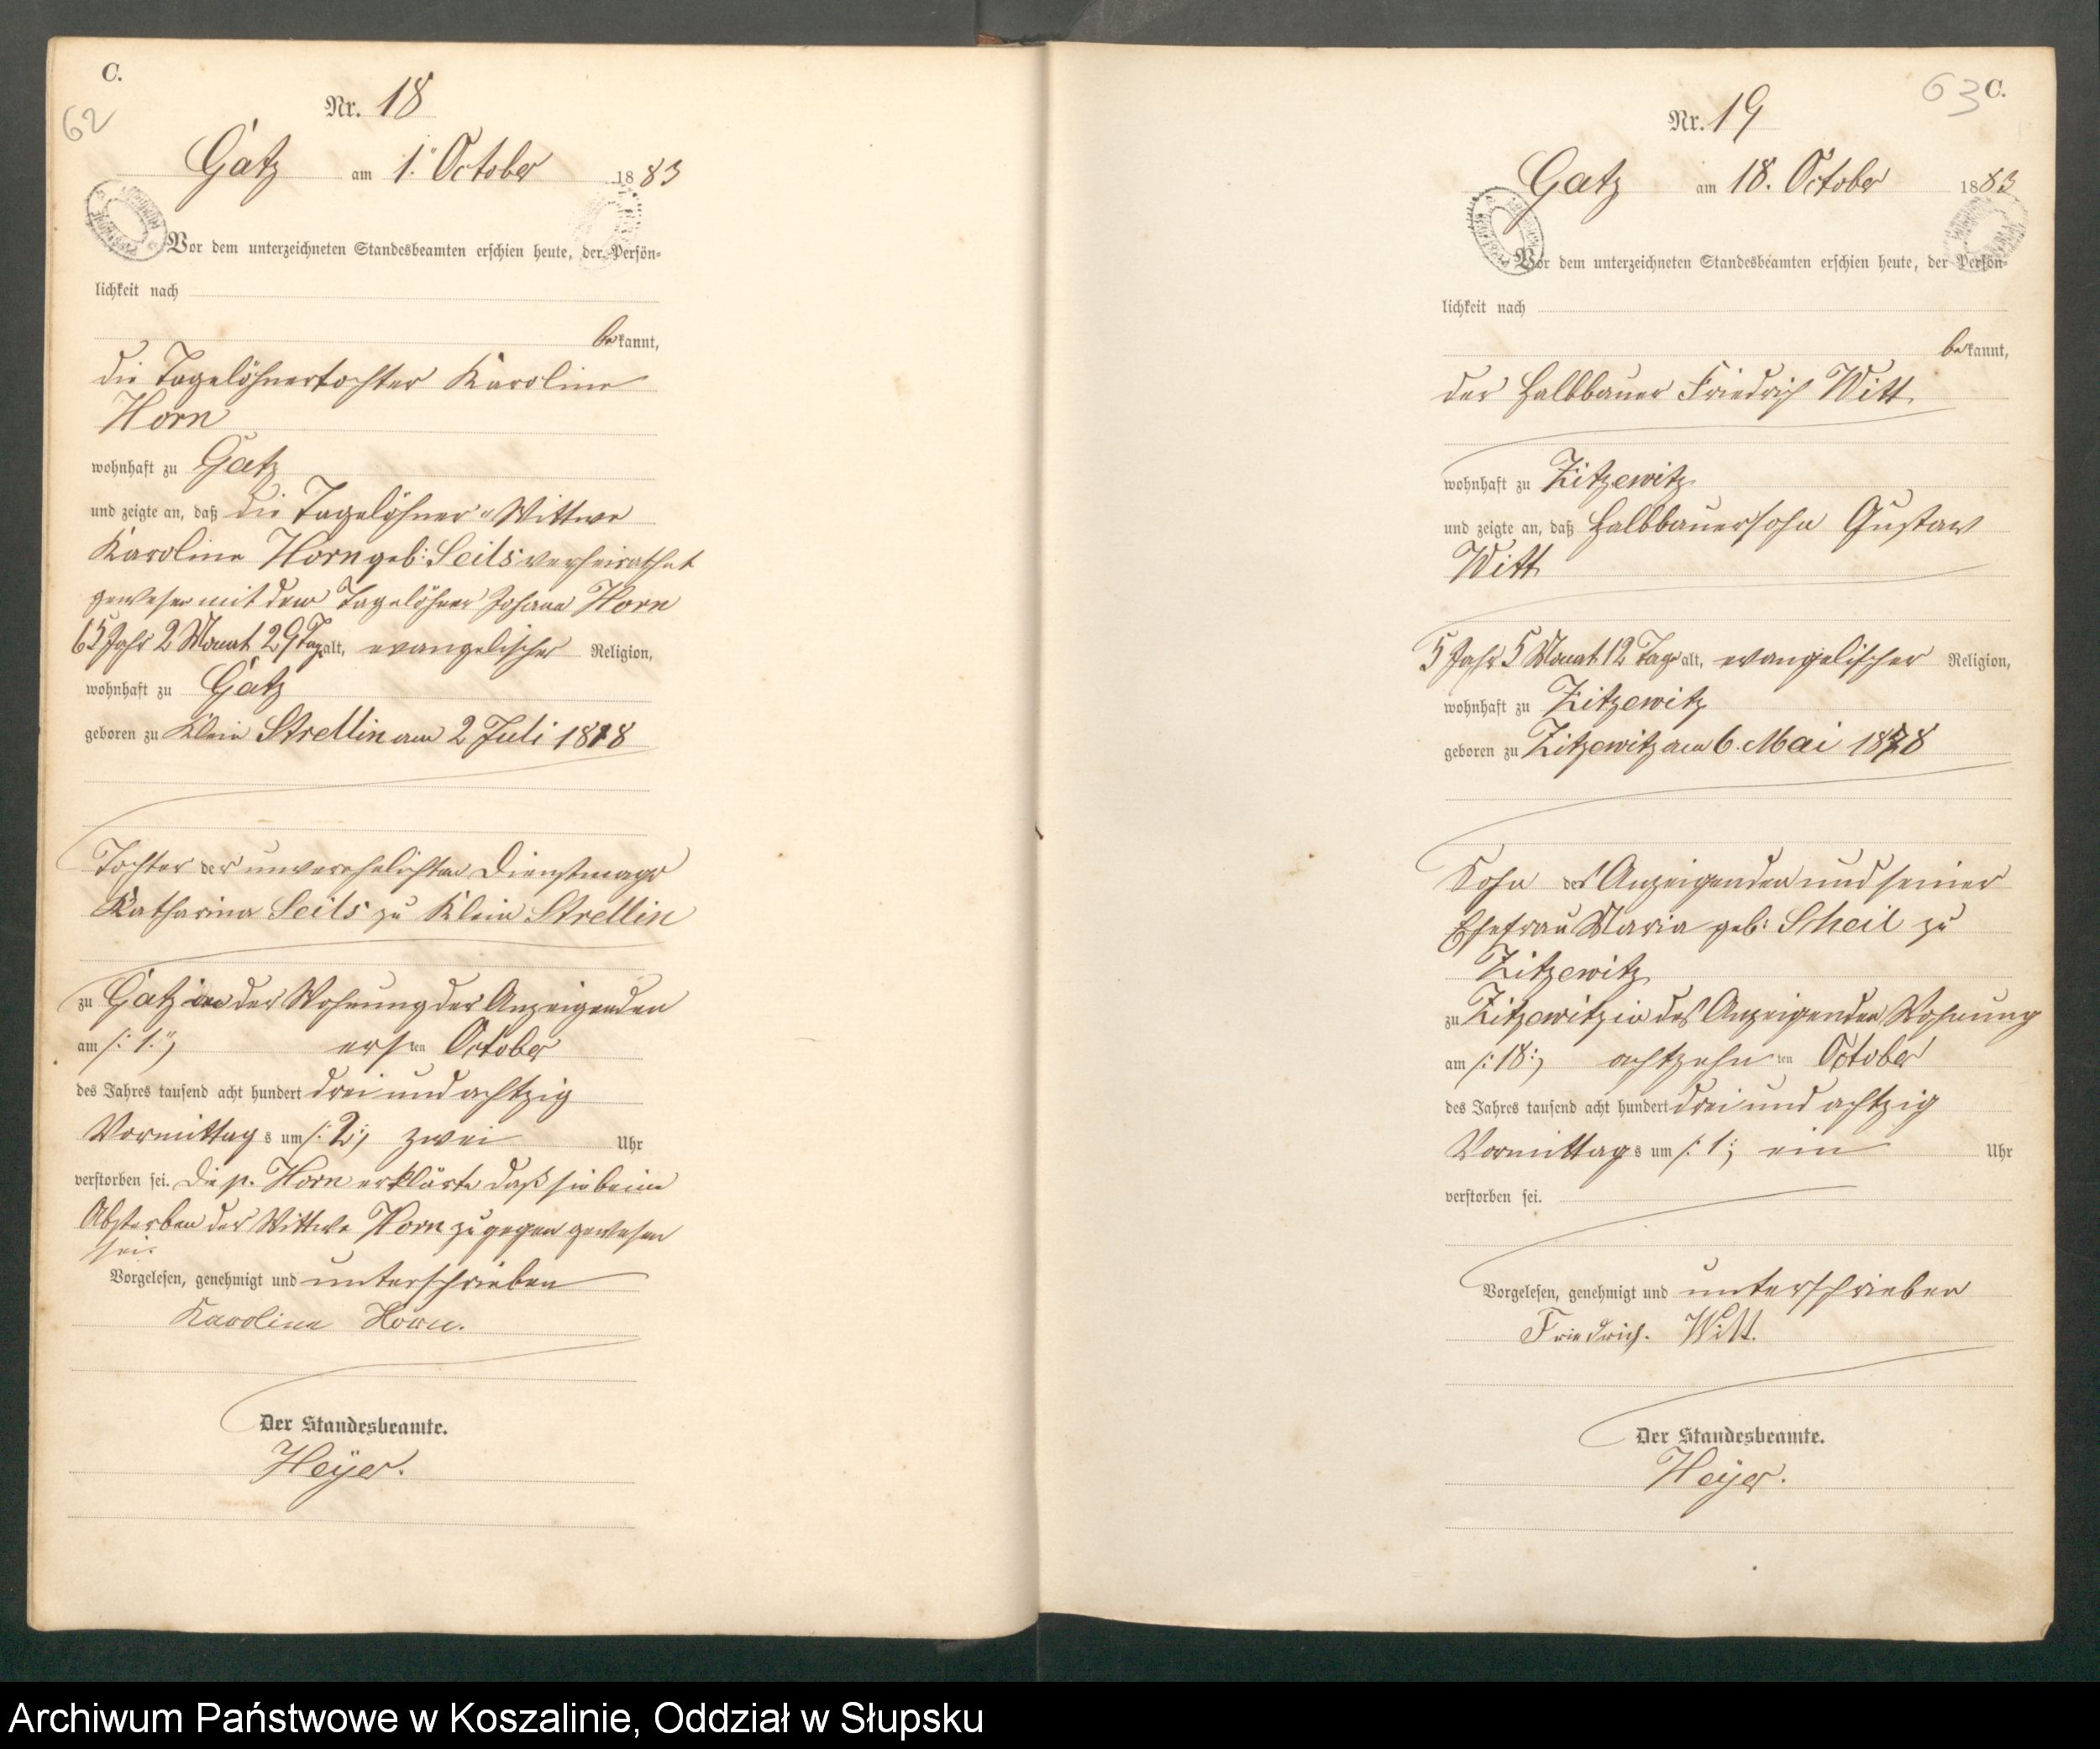 C.
62
Nr. 18
Gatz am 1. October 1883
Vor dem unterzeichneten Standesbeamten erschien heute, der Persön-
lichkeit nach
bekannt,
die Tagelöhnertochter Karoline
Horn
wohnhaft zu Gatz
und zeigte an, daß die Tagelöhner-Wittwe
Karoline Horn geb: Seils verheirathet
gewesen mit dem Tagelöhner Johann Horn
65 Jahr 2 Monat 29 Tag alt, evangelischer Religion,
wohnhaft zu Gatz
geboren zu Klein Strellin am 2 Juli 1818
Tochter der unverehelichten Dienstmagd
Katharina Seils zu Klein Strellin
zu Gatz in der Wohnung der Anzeigenden
am /: 1. :/ ersten October
des Jahres tausend acht hundert drei und achtzig
Vormittags um /: 2 :/ zwei Uhr
verstorben sei. Die p. Horn erklärte daß sie beim
Absterben der Wittwe Horn zugegen gewesen
sei.
Vorgelesen, genehmigt und unterschrieben
Karoline Horn.
Der Standesbeamte.
Heyer.
63 C.
Nr. 19
Gatz am 18. October 1883
Vor dem unterzeichneten Standesbeamten erschien heute, der Persön-
lichkeit nach
bekannt,
der Halbbauer Friedrich Witt
wohnhaft zu Zitzewitz
und zeigte an, daß Halbbauersohn Gustav
Witt
5 Jahr 5 Monat 12 Tage alt, evangelischer Religion,
wohnhaft zu Zitzewitz
geboren zu Zitzewitz am 6. Mai 1878
Sohn des Anzeigenden und seiner
Ehefrau Maria geb: Scheil zu
Zitzewitz
zu Zitzewitz in des Anzeigenden Wohnung
am /: 18 :/ achtzehnten October
des Jahres tausend acht hundert drei und achtzig
Vormittags um /: 1 :/ ein Uhr
verstorben sei.
Vorgelesen, genehmigt und unterschrieben
Friedrich. Witt.
Der Standesbeamte.
Heyer.
Archiwum Państwowe w Koszalinie, Oddział w Słupsku